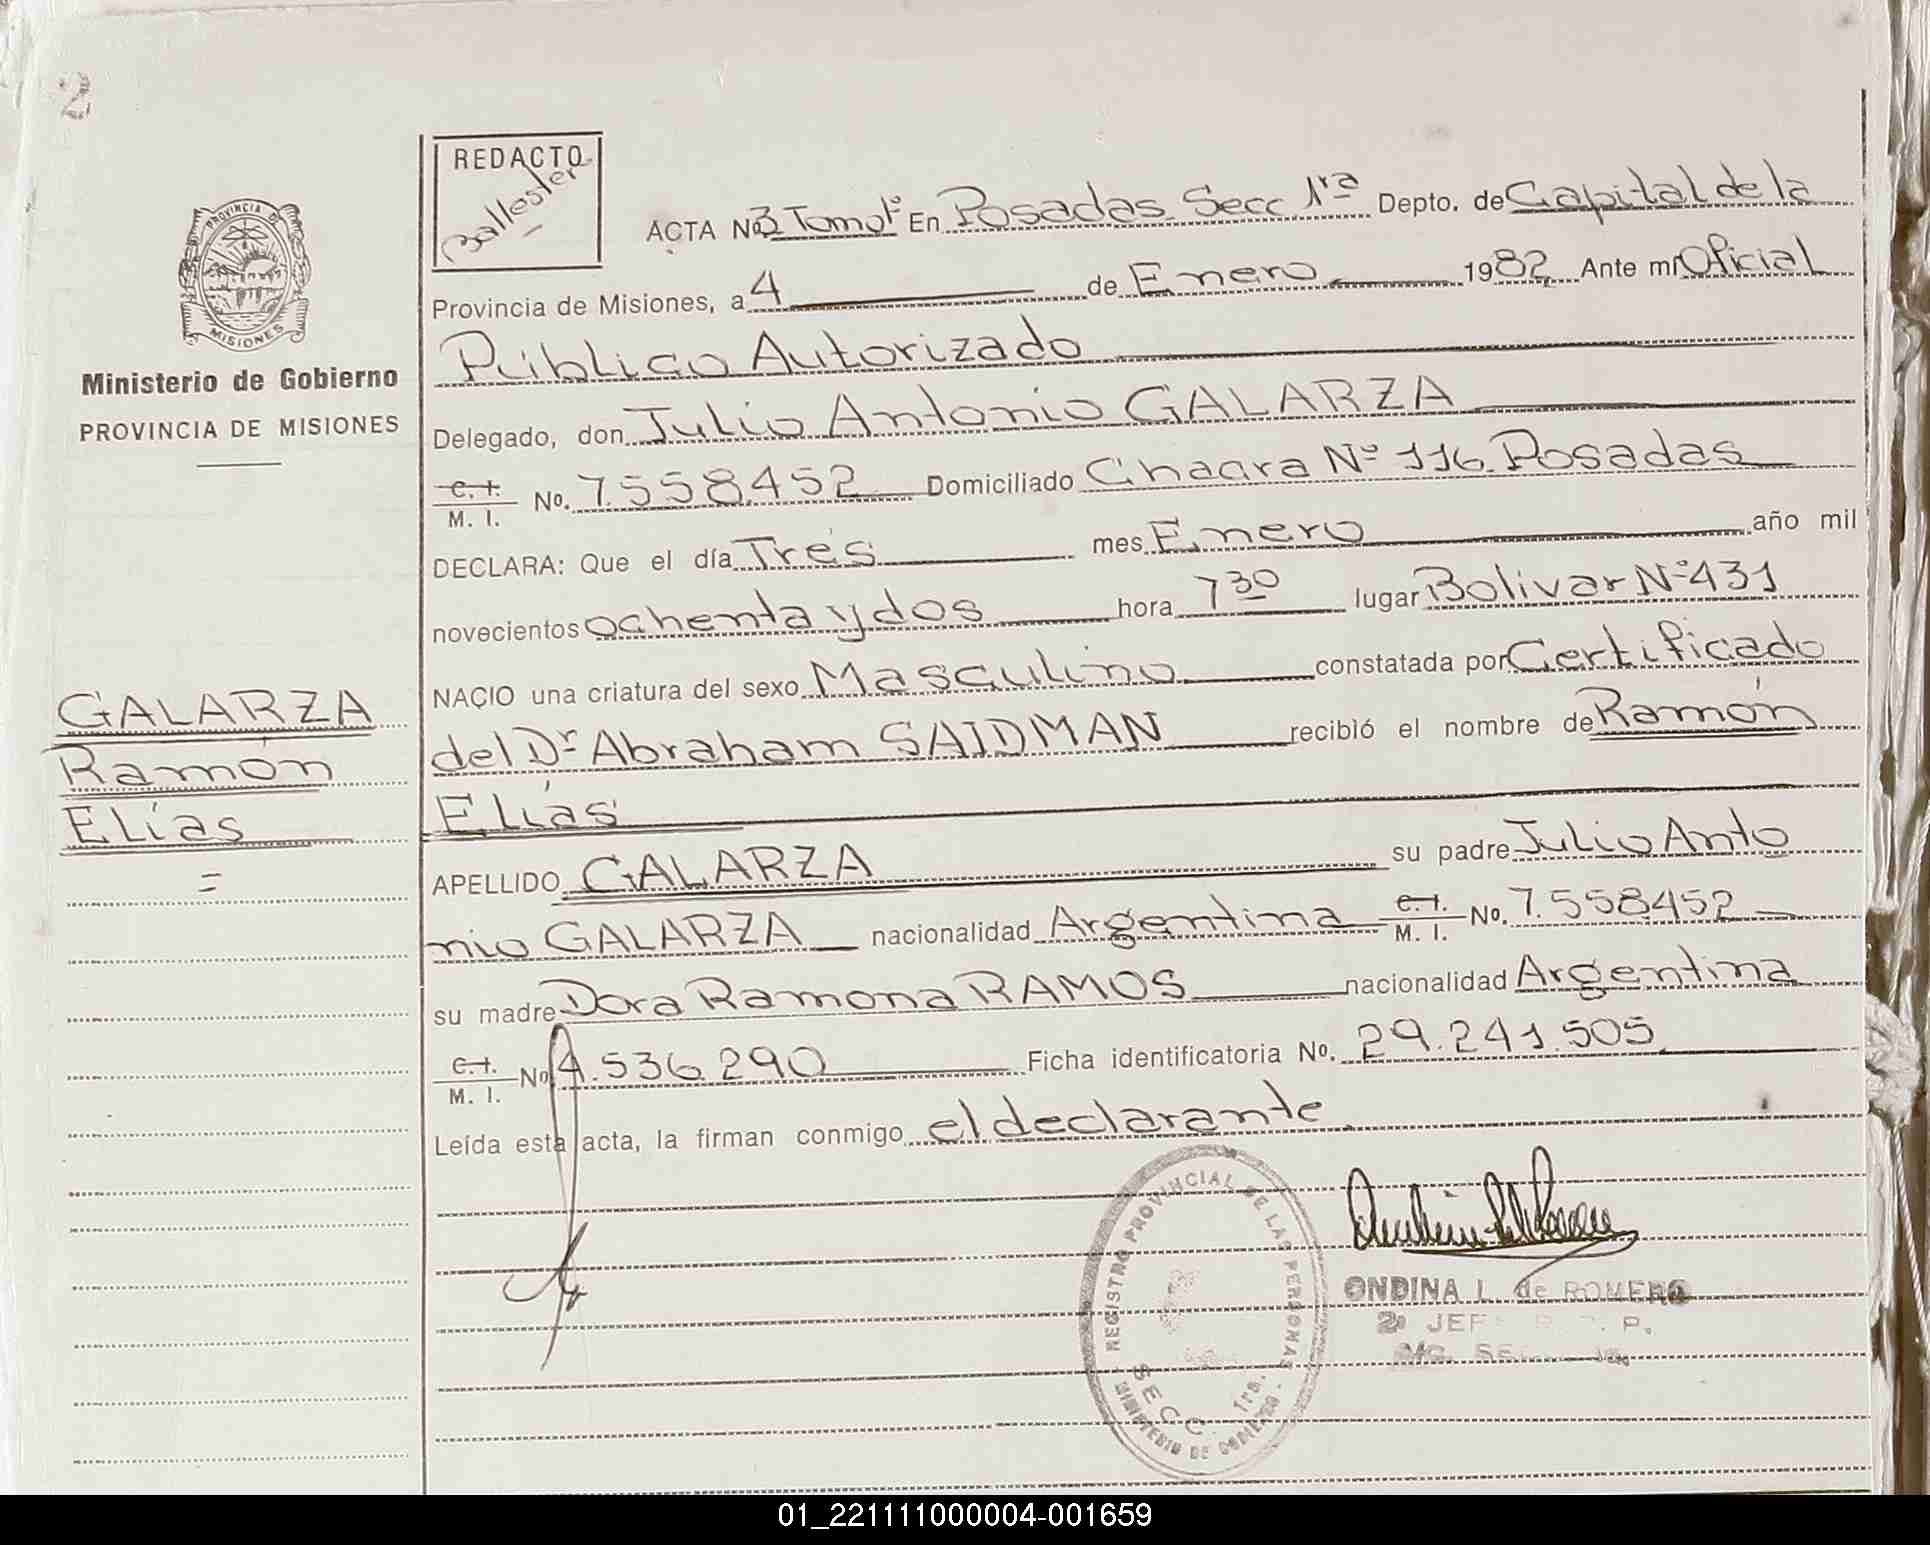 2
REDACTO
Ballester
PROVINCIA DE
MISIONES
Ministerio de Gobierno
PROVINCIA DE MISIONES
ACTA No. 3 Tomo 1º En Posadas Secc 1ra Depto. de Capital de la
Provincia de Misiones, a 4 de Enero 1982 Ante mi Oficial
Público Autorizado
Delegado, don Julio Antonio GALARZA
C. I. / M. I. No. 7.558.452 Domiciliado Chacra Nº 116 Posadas
DECLARA: Que el día Tres mes Enero año mil
novecientos ochenta y dos hora 7 30 lugar Bolivar Nº 431
NACIO una criatura del sexo Masculino constatada por Certificado
del Dr Abraham SAIDMAN recibió el nombre de Ramón
Elías
APELLIDO GALARZA su padre Julio Anto
nio GALARZA nacionalidad Argentina C. I. / M. I. No. 7.558.452
su madre Dora Ramona RAMOS nacionalidad Argentina
C. I. / M. I. No 4.536.290 Ficha identificatoria No. 29.241.505
Leída esta acta, la firman conmigo el declarante
GALARZA
Ramón
Elías
=
REGISTRO PROVINCIAL DE LAS PERSONAS
SECC 1ra.
MINISTERIO DE GOBIERNO
ONDINA L. de ROMERO
01_221111000004-001659